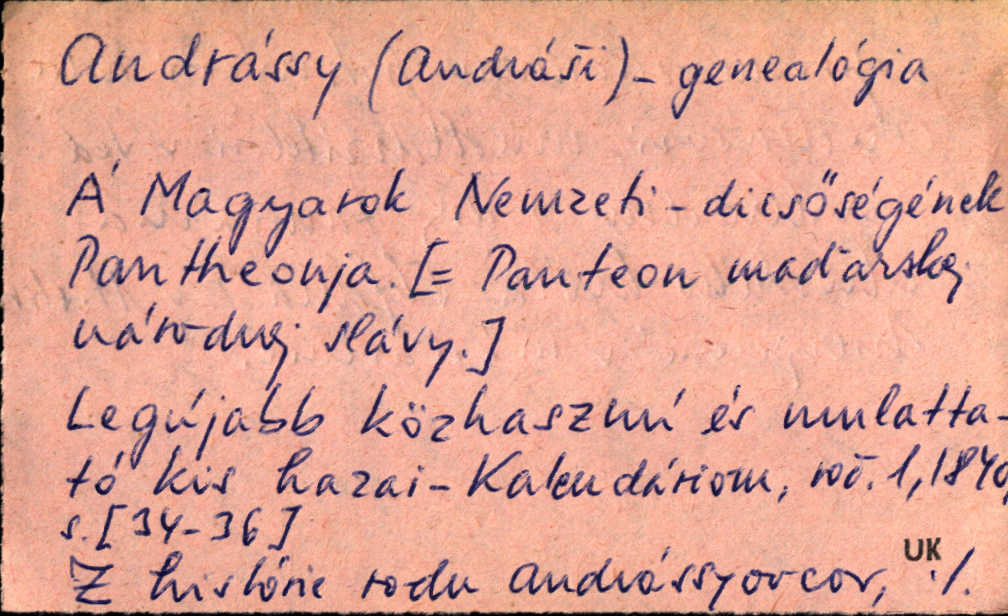 Andrássy (Andráši) - genealógia
Á Magyarok Nemzeti-dicsőségének
Pantheonja. [= Panteon maďarskej
národnej slávy.]
Legújabb közhasznú és mulatta-
tó kis hazai-Kalendáriom, roč. 1, 1840,
s. [34-36]
Z histórie rodu Andrássyovcov, ./.
UK